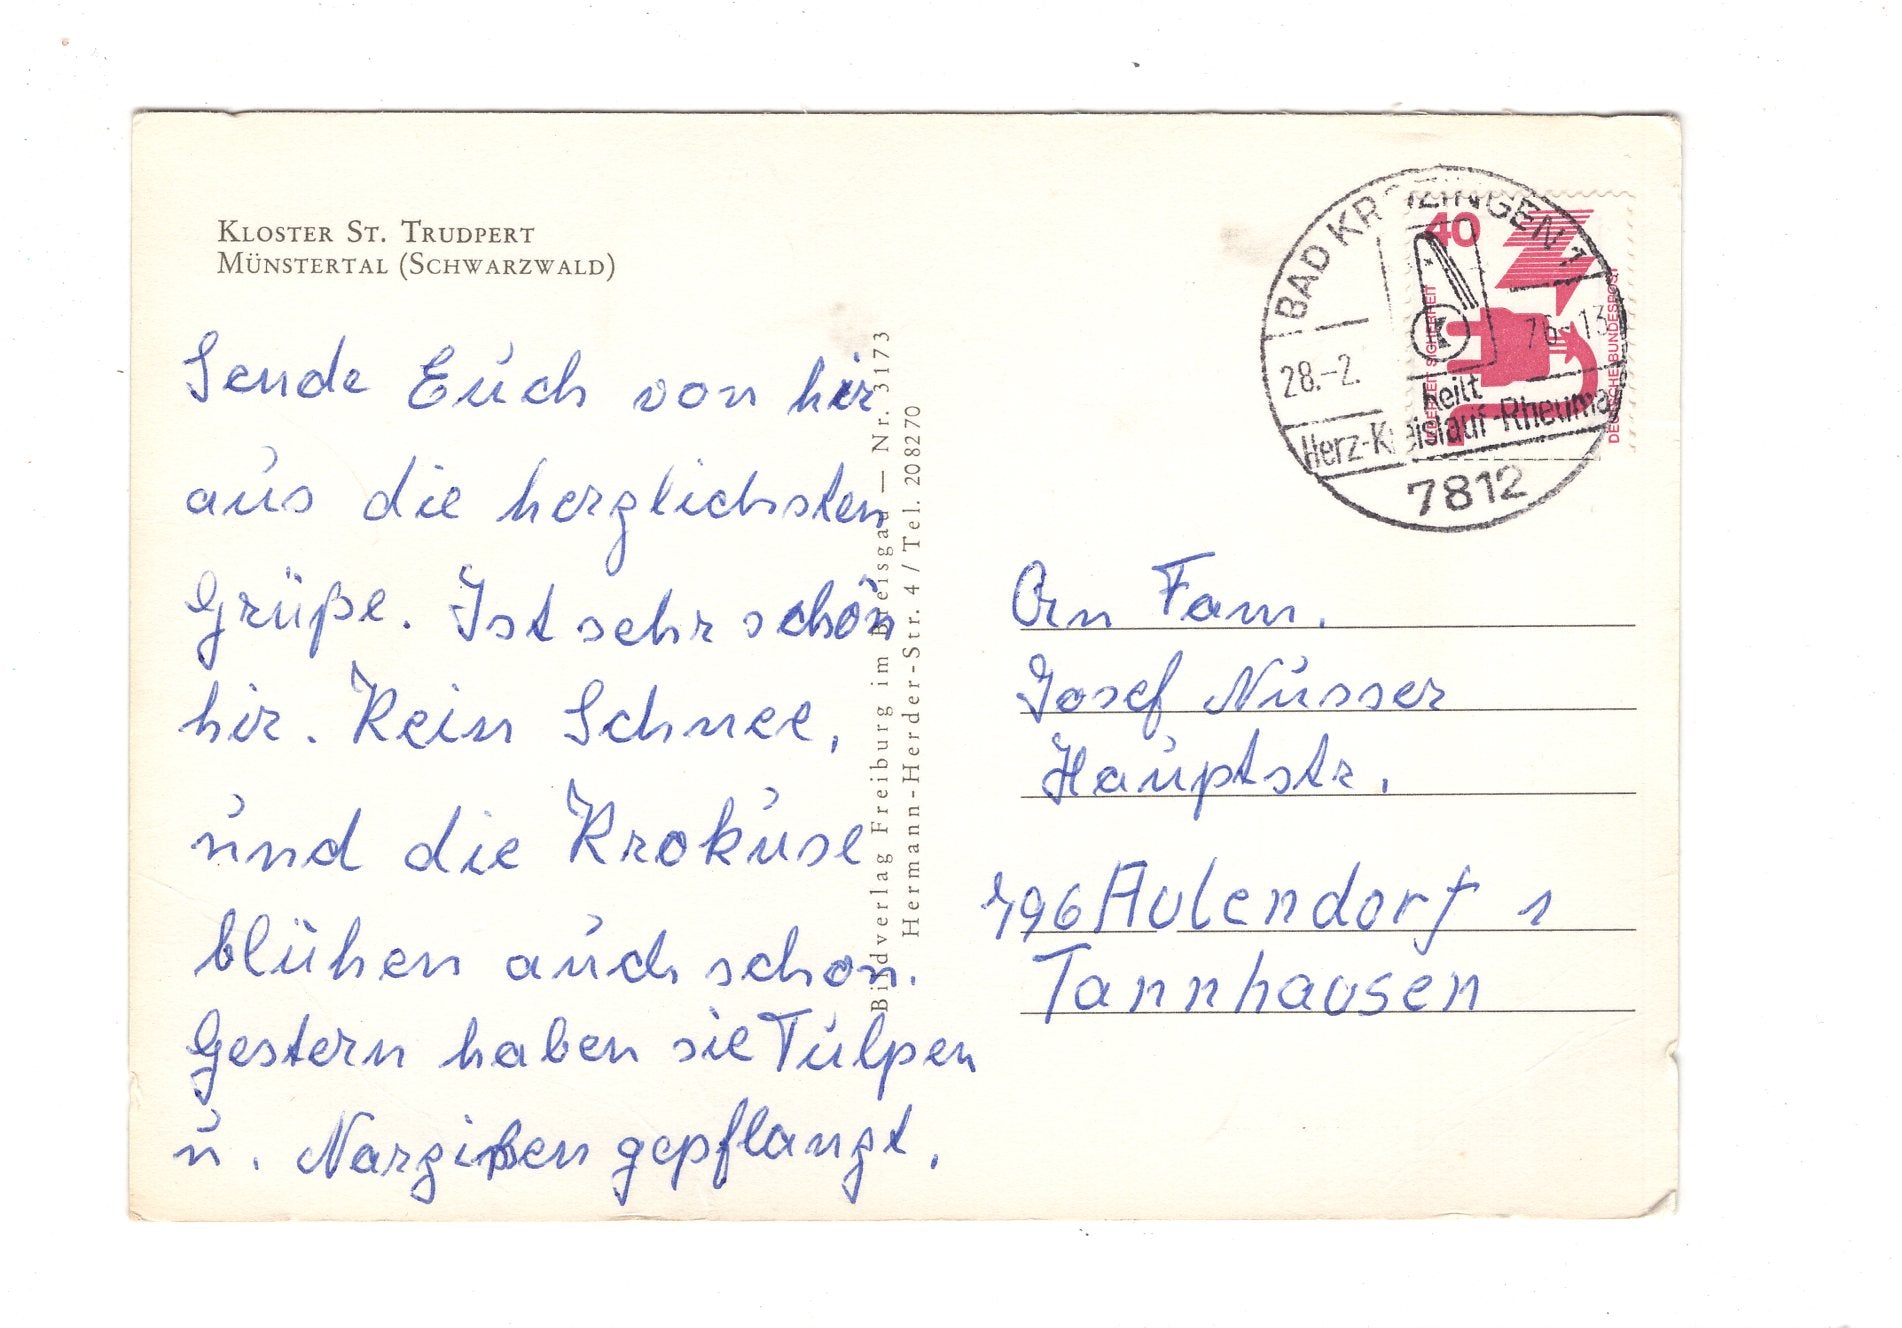 KLOSTER ST. TRUDPERT
MÜNSTERTAL (SCHWARZWALD)
Sende Euch von hir
aus die herzlichsten
Grüße. Ist sehr schön
hir. Kein Schnee,
und die Krokuse
blühen auch schon.
Gestern haben sie Tulpen
u. Narzißen gepflanzt.
Bildverlag Freiburg im Breisgau — Nr. 3173
Hermann-Herder-Str. 4 / Tel. 208270
BAD KROZINGEN 1
28.-2. 76-13
heilt
Herz-Kreislauf-Rheuma
7812
40
JEDERZEIT SICHERHEIT
DEUTSCHE BUNDESPOST
An Fam.
Josef Nusser
Hauptstr.
796 Aulendorf 1
Tannhausen